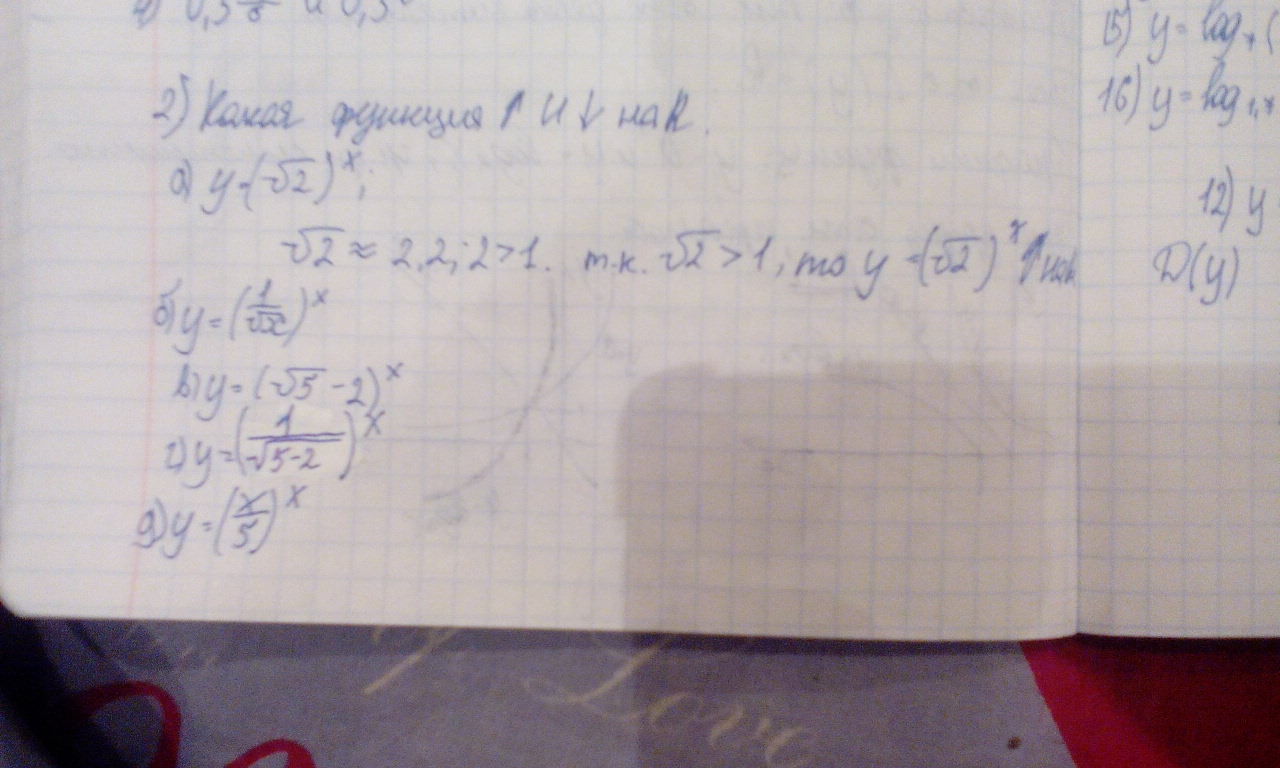 2) Какая функция ↑ и ↓ на R.
а) y=(√2)^x;
√2 ≈ 2,2; 2>1. т.к. √2 >1, то y =(√2)^x ↑ на R
б) y=(1/√x)^x
в) y=(√5-2)^x
г) y=(1/√5-2)^x
д) y=(x/5)^x
15) y= log
16) y= log
12) y
D(y)
Love